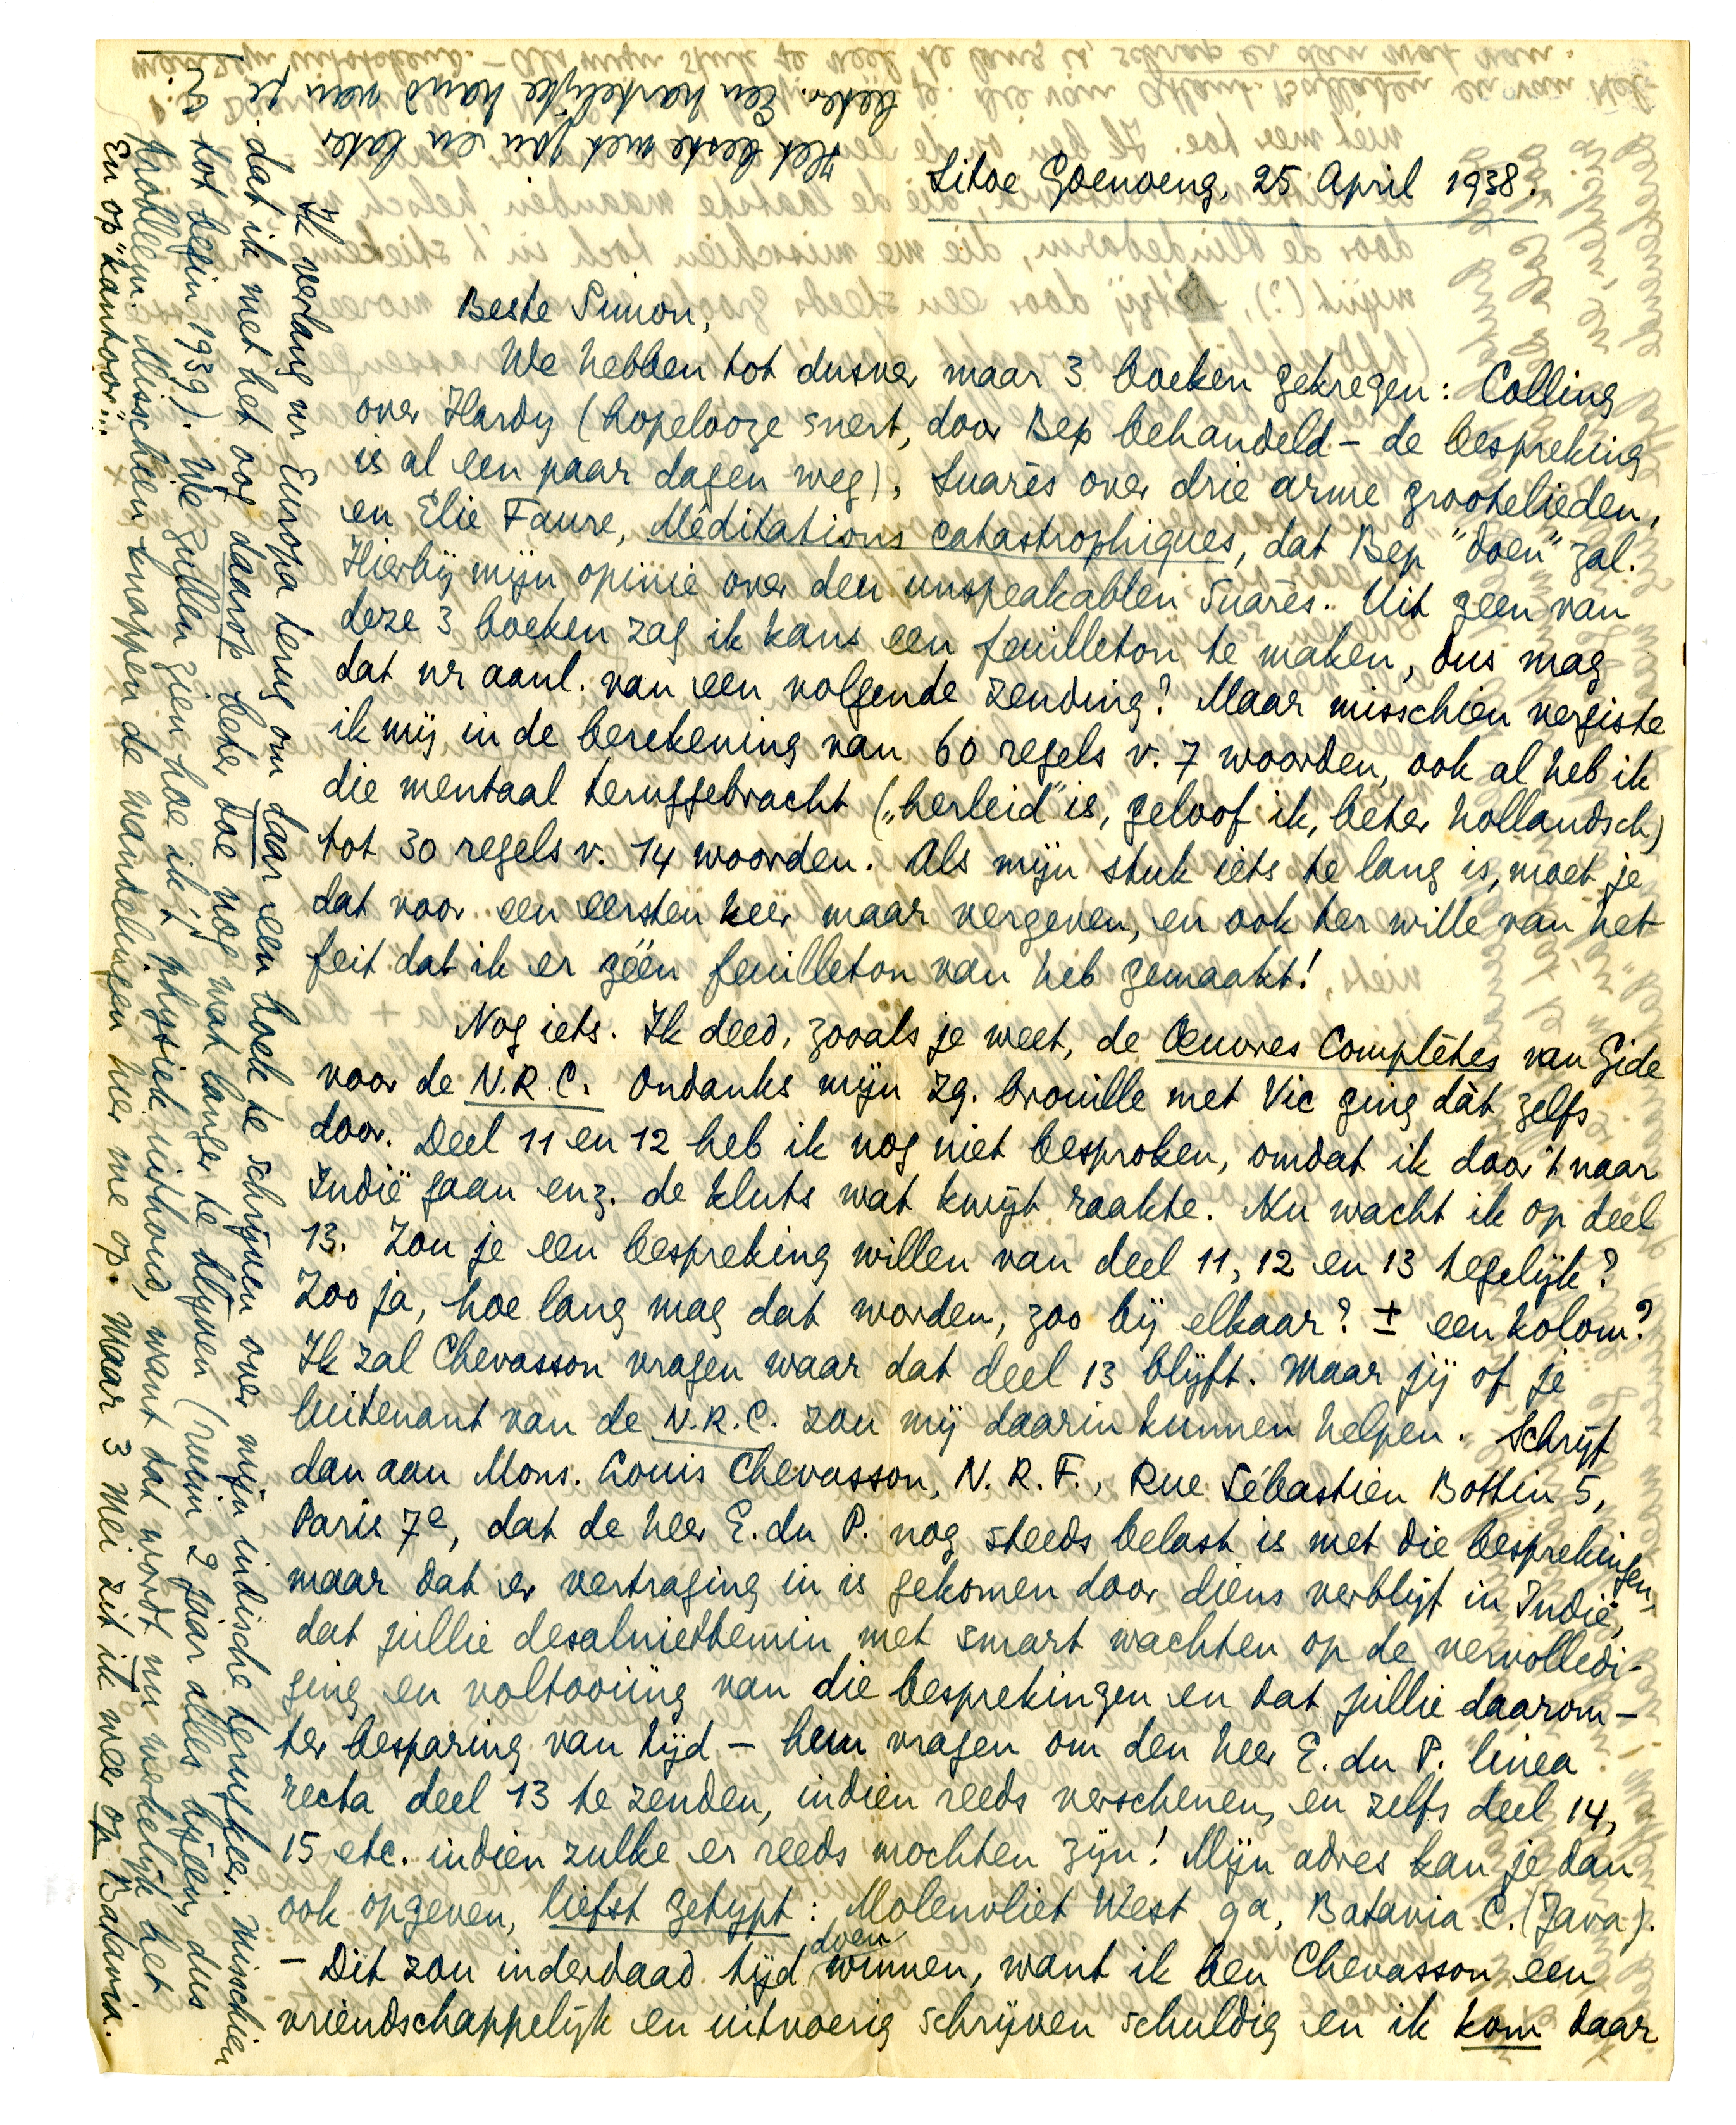 Sitoe Goenoeng, 25 April 1938.
Beste Simon,
We hebben tot dusver maar 3 boeken gekregen: Colling
over Hardy (hopelooze snert, door Bep behandeld – de bespreking
is al een paar dagen weg), Suarès over drie arme grootelieden,
en Elie Faure, Méditations catastrophiques, dat Bep "doen" zal.
Hierbij mijn opinie over den unspeakablen Suarès. Uit geen van
deze 3 boeken zag ik kans een feuilleton te maken, dus mag
dat nr aanl. van een volgende zending? Maar misschien vergiste
ik mij in de berekening van 60 regels v. 7 woorden, ook al heb ik
die mentaal teruggebracht („herleid" is, geloof ik, beter hollandsch)
tot 30 regels v. 14 woorden. Als mijn stuk iets te lang is, moet je
dat voor een eersten keer maar vergeven, en ook ter wille van het
feit dat ik er géén feuilleton van heb gemaakt!
Nog iets. Ik deed, zooals je weet, de Œuvres Complètes van Gide
voor de N.R.C. Ondanks mijn zg. brouille met Vic ging dàt zelfs
door. Deel 11 en 12 heb ik nog niet besproken, omdat ik door 't naar
Indië gaan enz. de kluts wat kwijt raakte. Nu wacht ik op deel
13. Zou je een bespreking willen van deel 11, 12 en 13 tegelijk?
Zoo ja, hoe lang mag dat worden, zoo bij elkaar? ± een kolom?
Ik zal Chevasson vragen waar dat deel 13 blijft. Maar jij of je
luitenant van de N.R.C. zou mij daarin kunnen helpen. Schrijf
dan aan Mons. Louis Chevasson, N.R.F., Rue Sébastien Bottin 5,
Paris 7e, dat de heer E. du P. nog steeds belast is met die besprekingen,
maar dat er vertraging in is gekomen door diens verblijf in Indië,
dat jullie desalniettemin met smart wachten op de vervolledi-
ging en voltooiing van die besprekingen en dat jullie daarom –
ter besparing van tijd – hem vragen om den heer E. du P. linea
recta deel 13 te zenden, indien reeds verschenen, en zelfs deel 14,
15 etc. indien zulke er reeds mochten zijn! Mijn adres kan je dan
ook opgeven, liefst getypt: Molenvliet West 9a, Batavia C. (Java).
– Dit zou inderdaad tijd doen winnen, want ik ben Chevasson een
vriendschappelijk en uitvoerig schrijven schuldig en ik kom daar
Ik verlang nr Europa terug om daar een boek te schrijven over mijn indische terugkeer. Misschien
dat ik met het oog daarop beter doe nog wat langer te blijven (ruim 2 jaar alles bijeen, dus
tot begin 1939). We zullen zien hoe ik 't physiek uithoud, want dat wordt nu werkelijk het
probleem. Misschien knappen de wandelingen hier me op. Maar 3 Mei zit ik weer op Batavia.
En op "kantoor"...
Het beste met jou en later
beter. Een hartelijke hand van je
E.